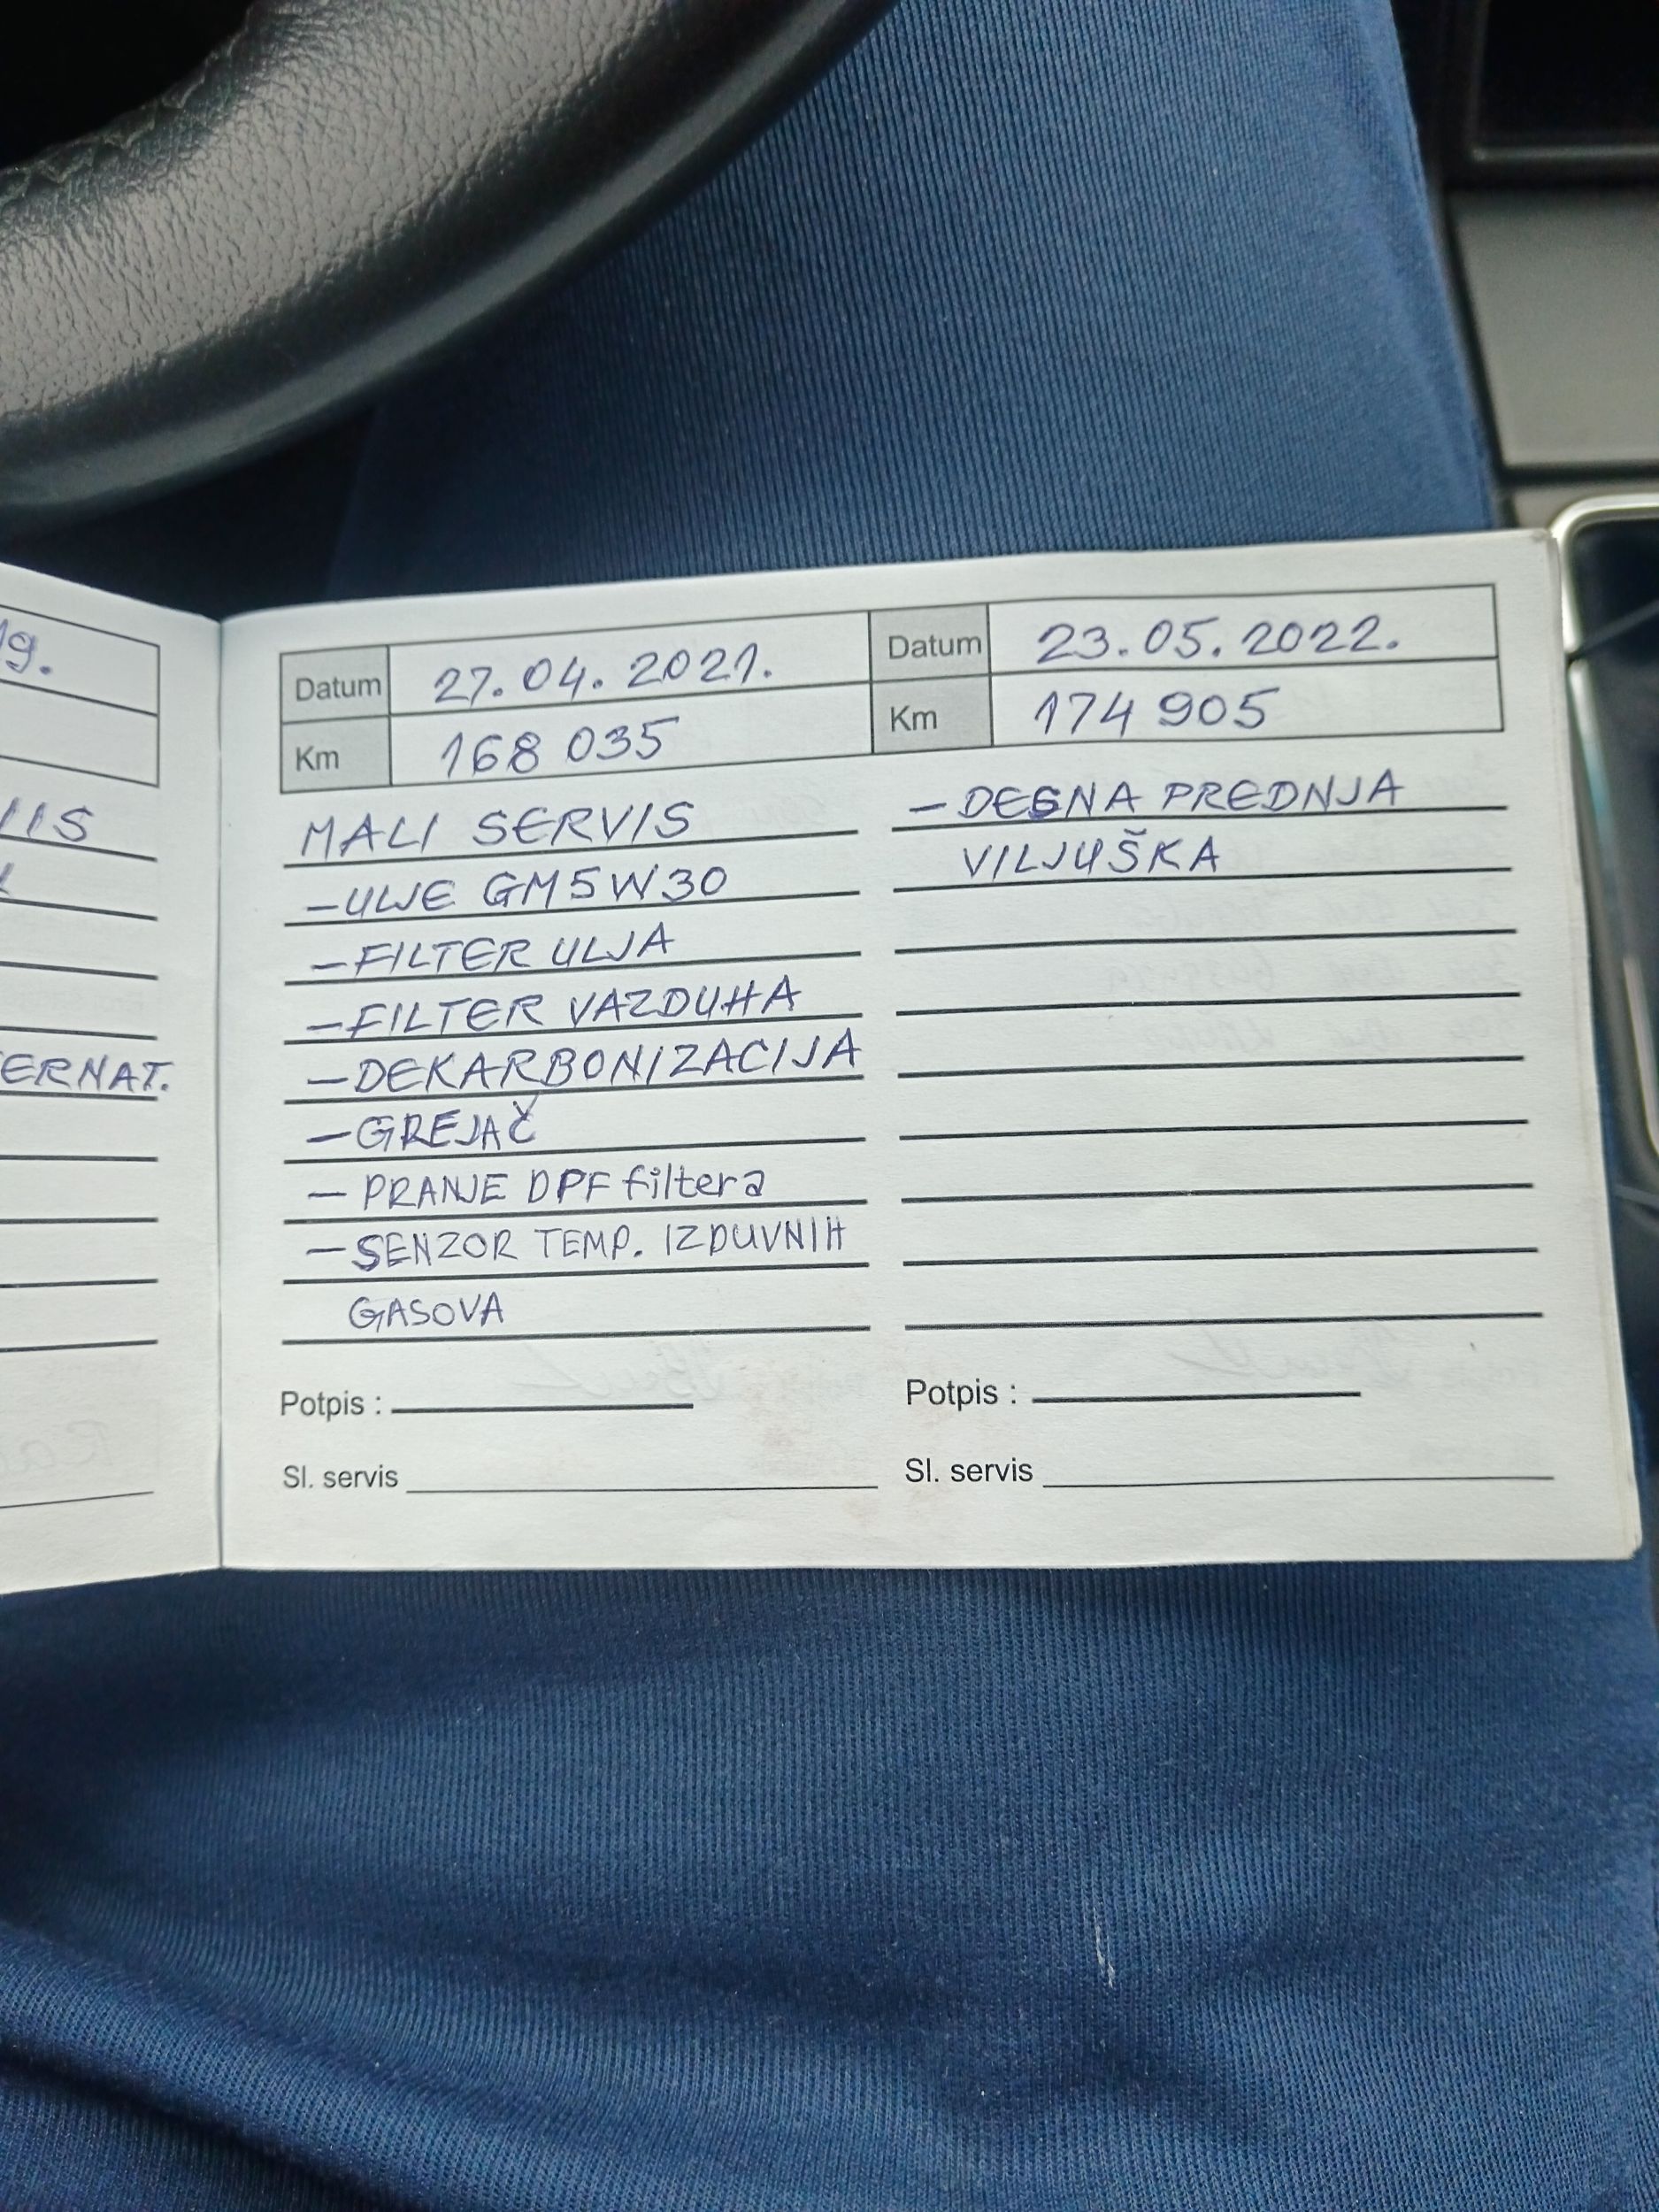 19.
ERNAT.
Datum 27.04.2021.
Km 168 035
MALI SERVIS
- ULJE GM5W30
- FILTER ULJA
- FILTER VAZDUHA
- DEKARBONIZACIJA
- GREJAČ
- PRANJE DPF filtera
- SENZOR TEMP. IZDUVNIH
GASOVA
Potpis :
Sl. servis
Datum 23.05.2022.
Km 174 905
- DESNA PREDNJA
VILJUŠKA
Potpis :
Sl. servis